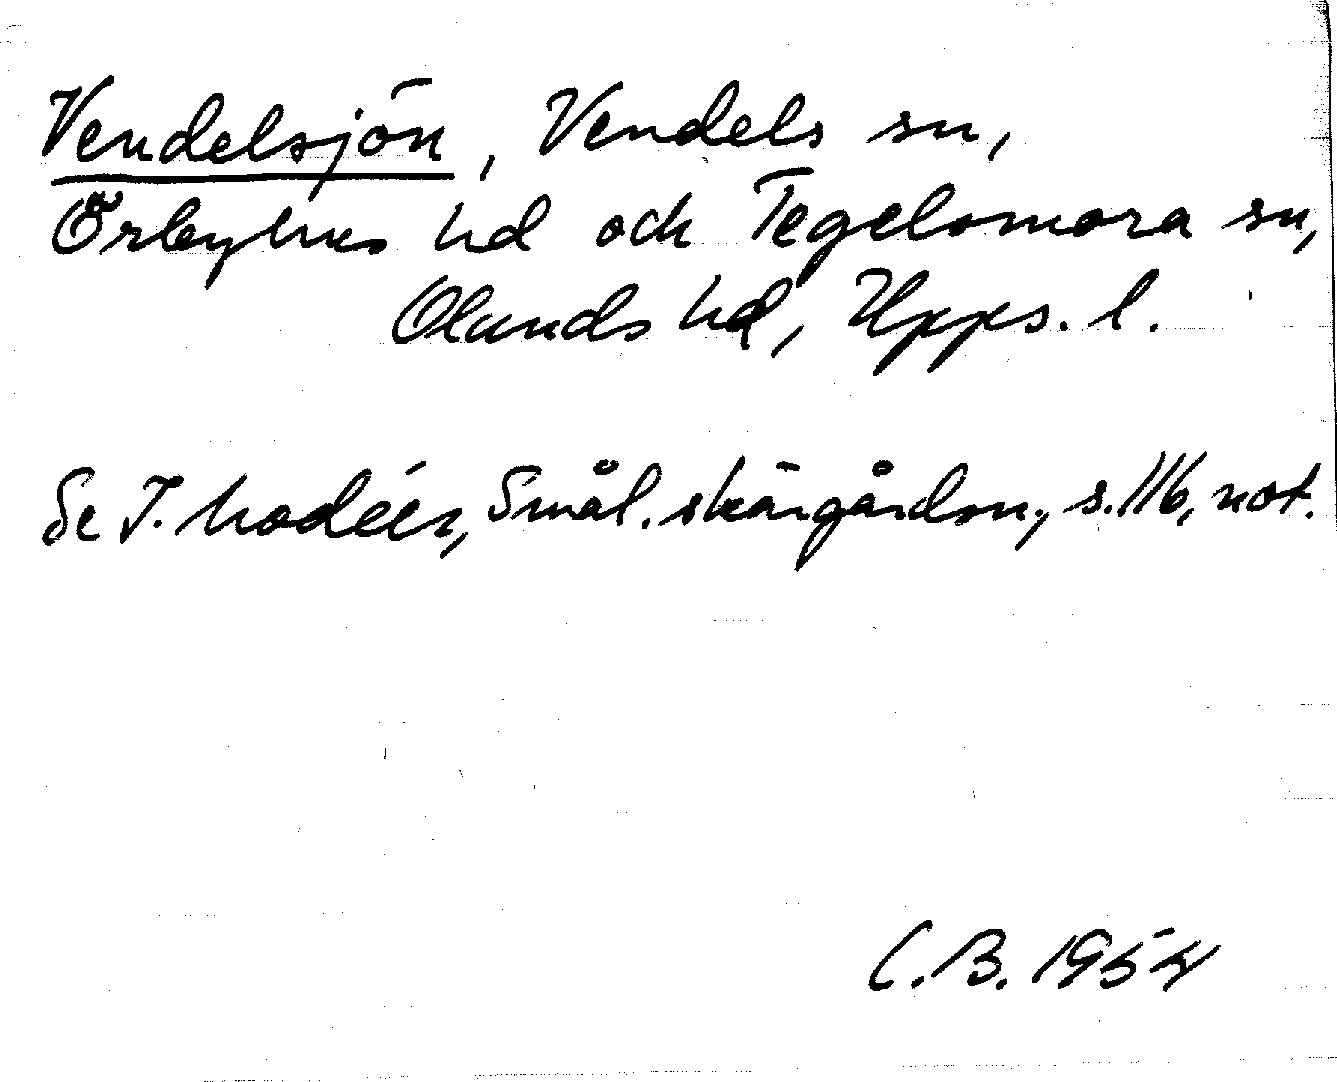 Vendelsjön, Vendels sn,
Örbyhus hd och Tegelsmora sn,
Olands hd, Upps. l.
Se I. Modéer, Smål. skärgårdsn., s. 116, not.
C.B. 1954